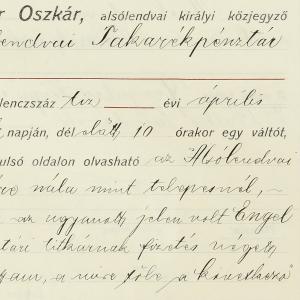 r Oszkár, alsólendvai királyi közjegyző
lendvai Takarékpénztár
lenczszáz tiz évi április
napján, dél előtt 10 órakor egy váltót,
tulsó oldalon olvasható az "Alsólendvai
nála mint telepesnél, –
az ugyanott jelen volt Engel
titkárnak fizetés végett
a mire föle a következő